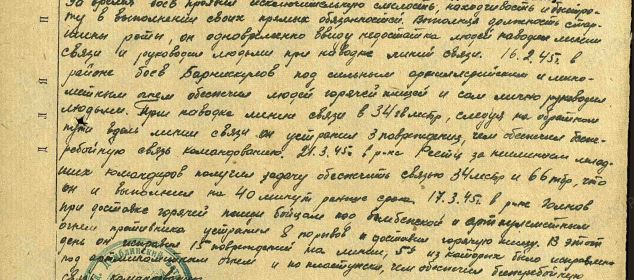 За время боев проявил исключительную смелость, находчивость и быстро-
ту в выполнении своих прямых обязанностей. Выполняя должность стар-
шины роты, он одновременно ввиду недостатка людей наводил линии
связи и руководил людьми при наводке линий связи. 16.2.45г. в
районе боев под сильным артиллерийским и мино-
метным огнем обеспечил людей горячей пищей и сам лично руководил
людьми. При наводке линии связи в 34 гв мстр, следуя на обратном
пути вдоль линии связи он устранил 3 повреждения, чем обеспечил беспе-
ребойную связь командованию. 21.3.45г. в р-не за неимением млад-
ших командиров получил задачу обеспечить связью 34 мстр и 66 тбр, что
он и выполнил на 40 минут раньше срока. 17.3.45г. в р-не
при доставке горячей пищи бойцам под бомбежкой и артпулеметным
огнем противника устранил 8 порывов и доставил горячую пищу. В этот
день он исправил 15 повреждений на линии, 5 из которых было исправлено
под артминометным огнем и по-пластунски, чем обеспечил бесперебойную
связь
для п